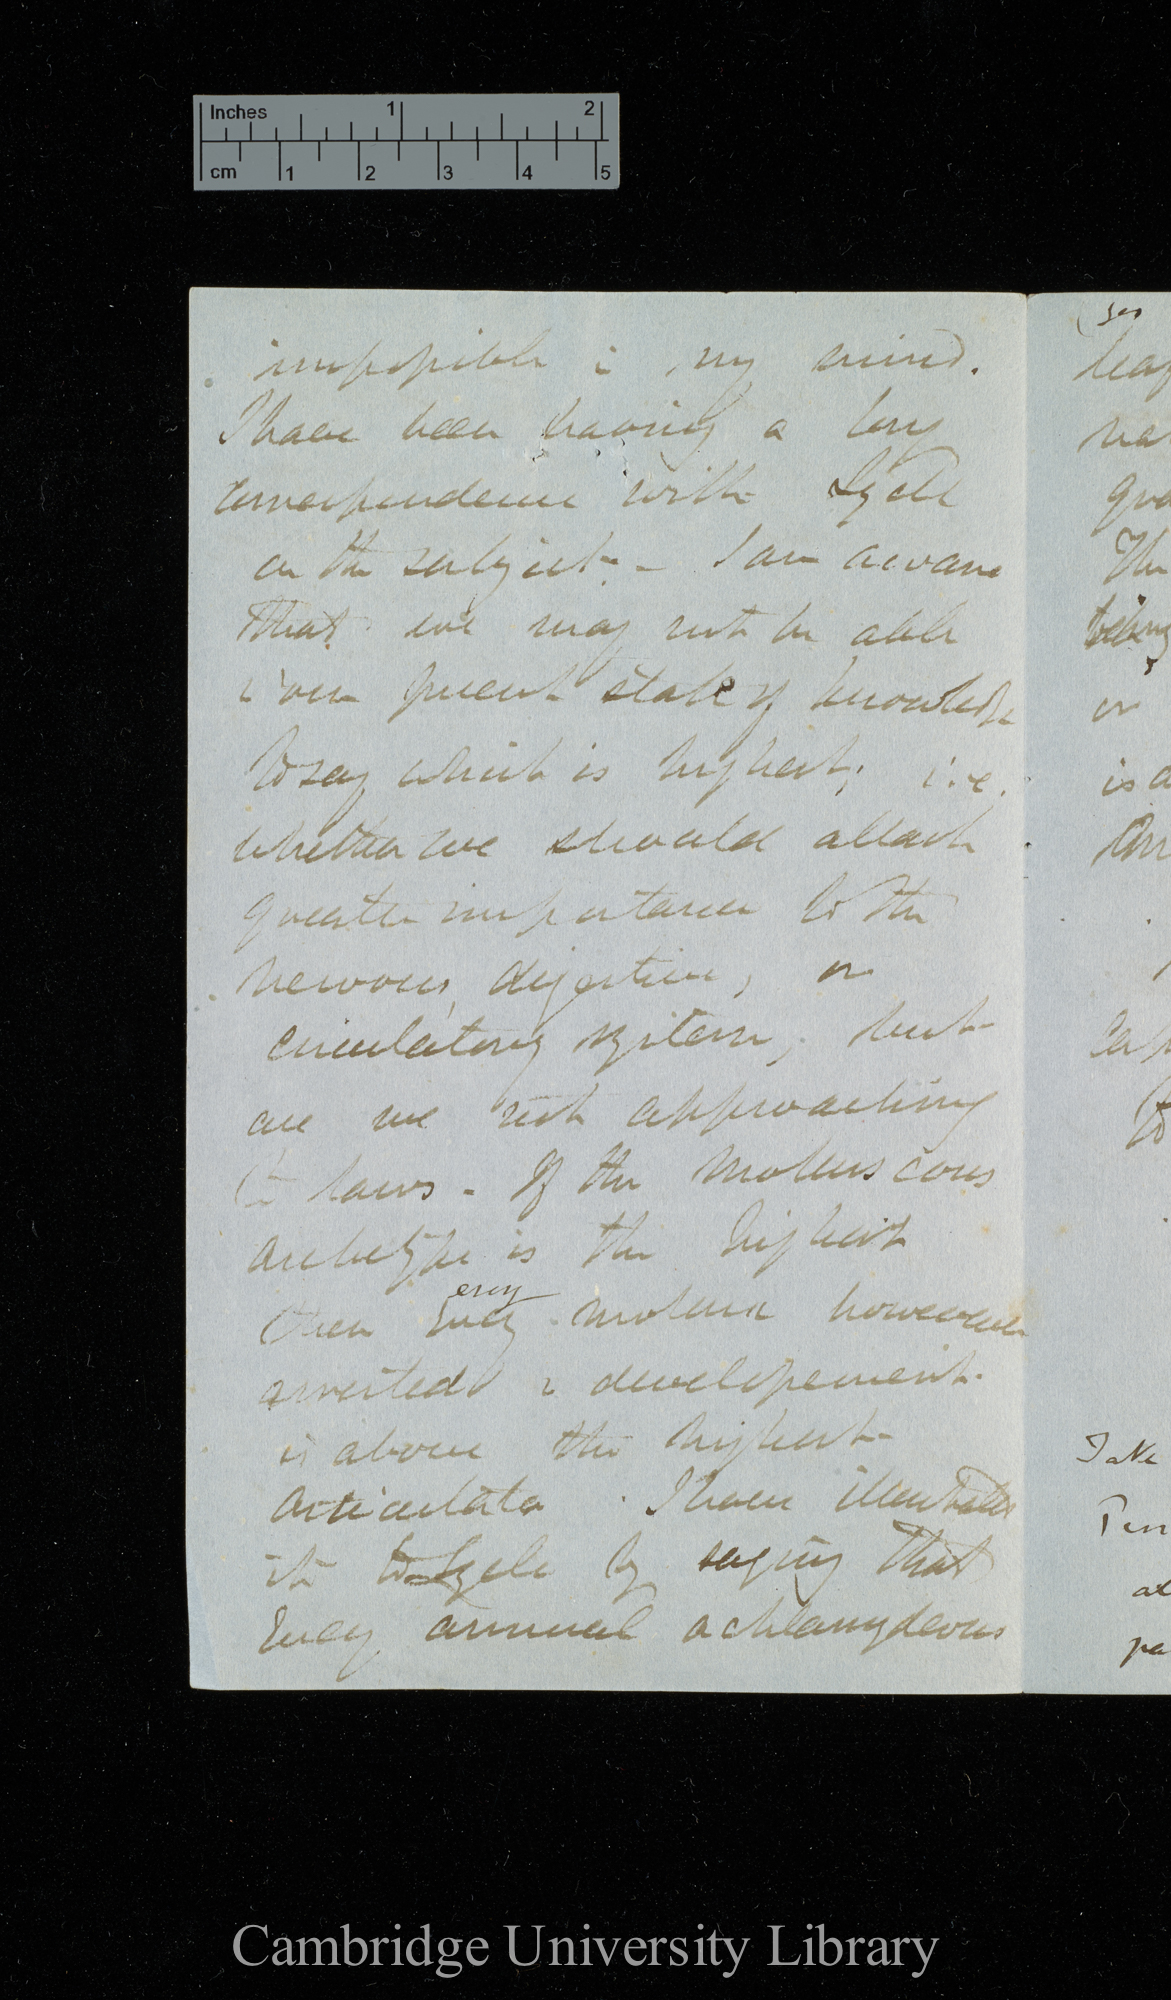 Inches 1 2
cm 1 2 3 4 5
impossible in my mind.
I have been having a long
correspondence with Lyell
on the subject. – I am aware
that we may not be able
in our present state of knowledge
to say which is highest; i.e.
whether we should attach
greater importance to the
nervous, digestive, or
circulatory system; but
are we not approaching
to laws. If the Molluscous
archetype is the highest
ery
then Every mollusc however
arrested in developement
is above the highest
Articulata. I have illustrated
it to Lyell by saying that
Every annual achlamydeous
leaf
The
being
or
is a
Take
at
pa
Cambridge University Library